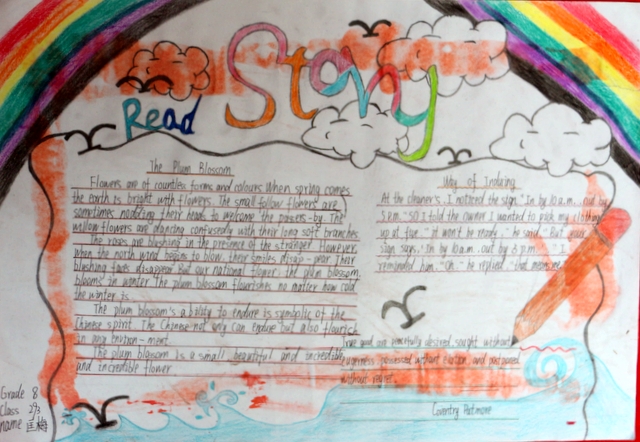 Read Story
The Plum Blossom
Flowers are of countless forms and colours. When spring comes
the earth is bright with flowers. The small follow flowers are
sometimes nodding their heads to welcome the passers-by. The
willow flowers are dancing confusedly with their long soft branches
The roses are blushing in the presence of the stranger. However
when the north wind begins to blow, their smiles disap-pear their
blushing faces disappear. But our national flower the plum blossom,
blooms in winter The plum blossom flourishes no matter how cold
the winter is
The plum blossom's a ability to endure is symbolic of the
Chinese spirit. The Chinese not only can endure but also flourish
in any environ-ment.
The plum blossom is a small beautiful and incredible
and incredible flower
Way of Inducing
At the cleaner's, I noticed the sign, "In by 10 a.m., out by
5 p.m." So I told the owner I wanted to pick my clothing
up at five. " it won't be ready " he said. " But your
sign says, 'In by 10 a.m. out by 5 p.m. " I
reminded him. "Oh," he replied, "that means me
good are peacefully desired, sought without
eagerness, possessed without elation, and postponed
without regret.
Coventry Patmore
Grade 8
Class
name